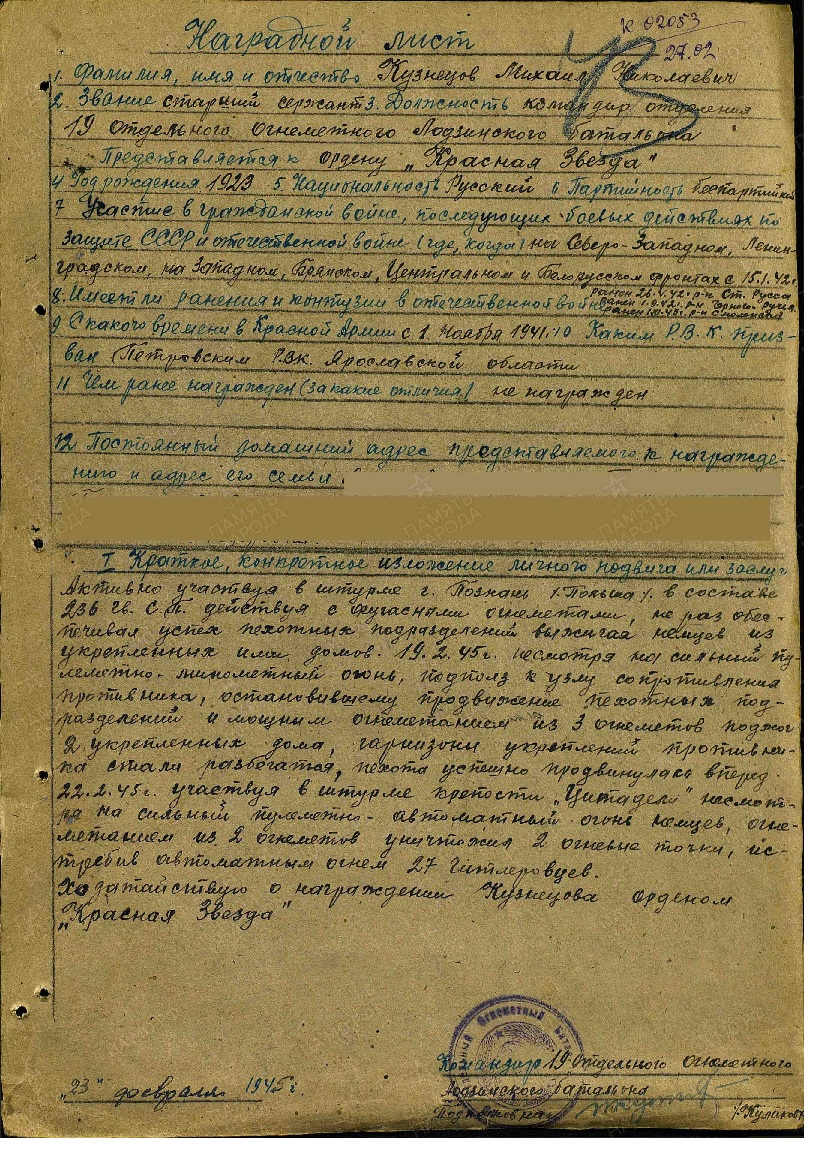 к 02053
27.02
Наградной лист
1. Фамилия, имя и отчество Кузнецов Михаил Николаевич
2. Звание старший сержант 3. Должность командир отделения
19 отдельного огнеметного Лодзинского батальона
Представляется к ордену „Красная Звезда"
4 Год рождения 1923 5. Национальность Русский 6 Партийность беспартийный
7 Участие в гражданской войне, последующих боевых действиях по
защите СССР и отечественной войне (где, когда) на Северо-Западном, Ленин-
градском, на Западном, Брянском, Центральном и Белорусском фронтах с 15.1.42г
8. Имеет ли ранения и контузии в отечественной войне ранен 26.4.42г. р-н Ст. Русса
ранен р-н
ранен р-н
9 С какого времени в Красной Армии с 1 Ноября 1941. 10 Каким Р.В.К. приз-
ван Петровским РВК Ярославской области
11 Чем ранее награжден (за какие отличия) не награжден
12 Постоянный домашний адрес представляемого к награжде-
нию и адрес его семьи
I Краткое, конкретное изложение личного подвига или заслуг
Активно участвуя в штурме г. Познань /Польша/. в составе
236 гв. С.П. действуя с фугасными огнеметами, не раз обес-
печивал успех пехотных подразделений выжигая немцев из
укрепленных ими домов. 19.2.45г. несмотря на сильный пу-
леметно-минометный огонь, подполз к узлу сопротивления
противника, остановившему продвижение пехотных под-
разделений и мощным огнеметанием из 3 огнеметов поджог
2 укрепленных дома, гарнизоны укреплений противни-
ка стали разбегатся, пехота успешно продвинулась вперед.
22.2.45г. участвуя в штурме крепости „Цитадель" несмот-
ря на сильный пулеметно-автоматный огонь немцев, огне-
метанием из 2 огнеметов уничтожил 2 огневые точки, ис-
требив автоматным огнем 27 гитлеровцев.
Ходатайствую о награждении Кузнецова орденом
„Красная Звезда"
Огнеметный
Командир 19 Отдельного огнеметного
„23" февраля 1945г.
Лодзинского батальона
Подполковник /Куликов/